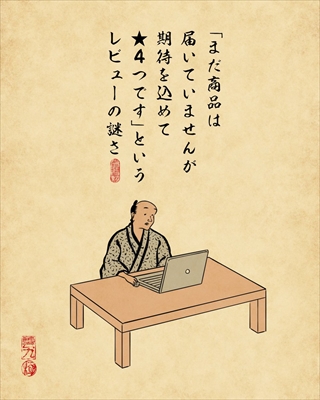 「まだ商品は
届いていませんが
期待を込めて
★4つです」という
レビューの謎さ